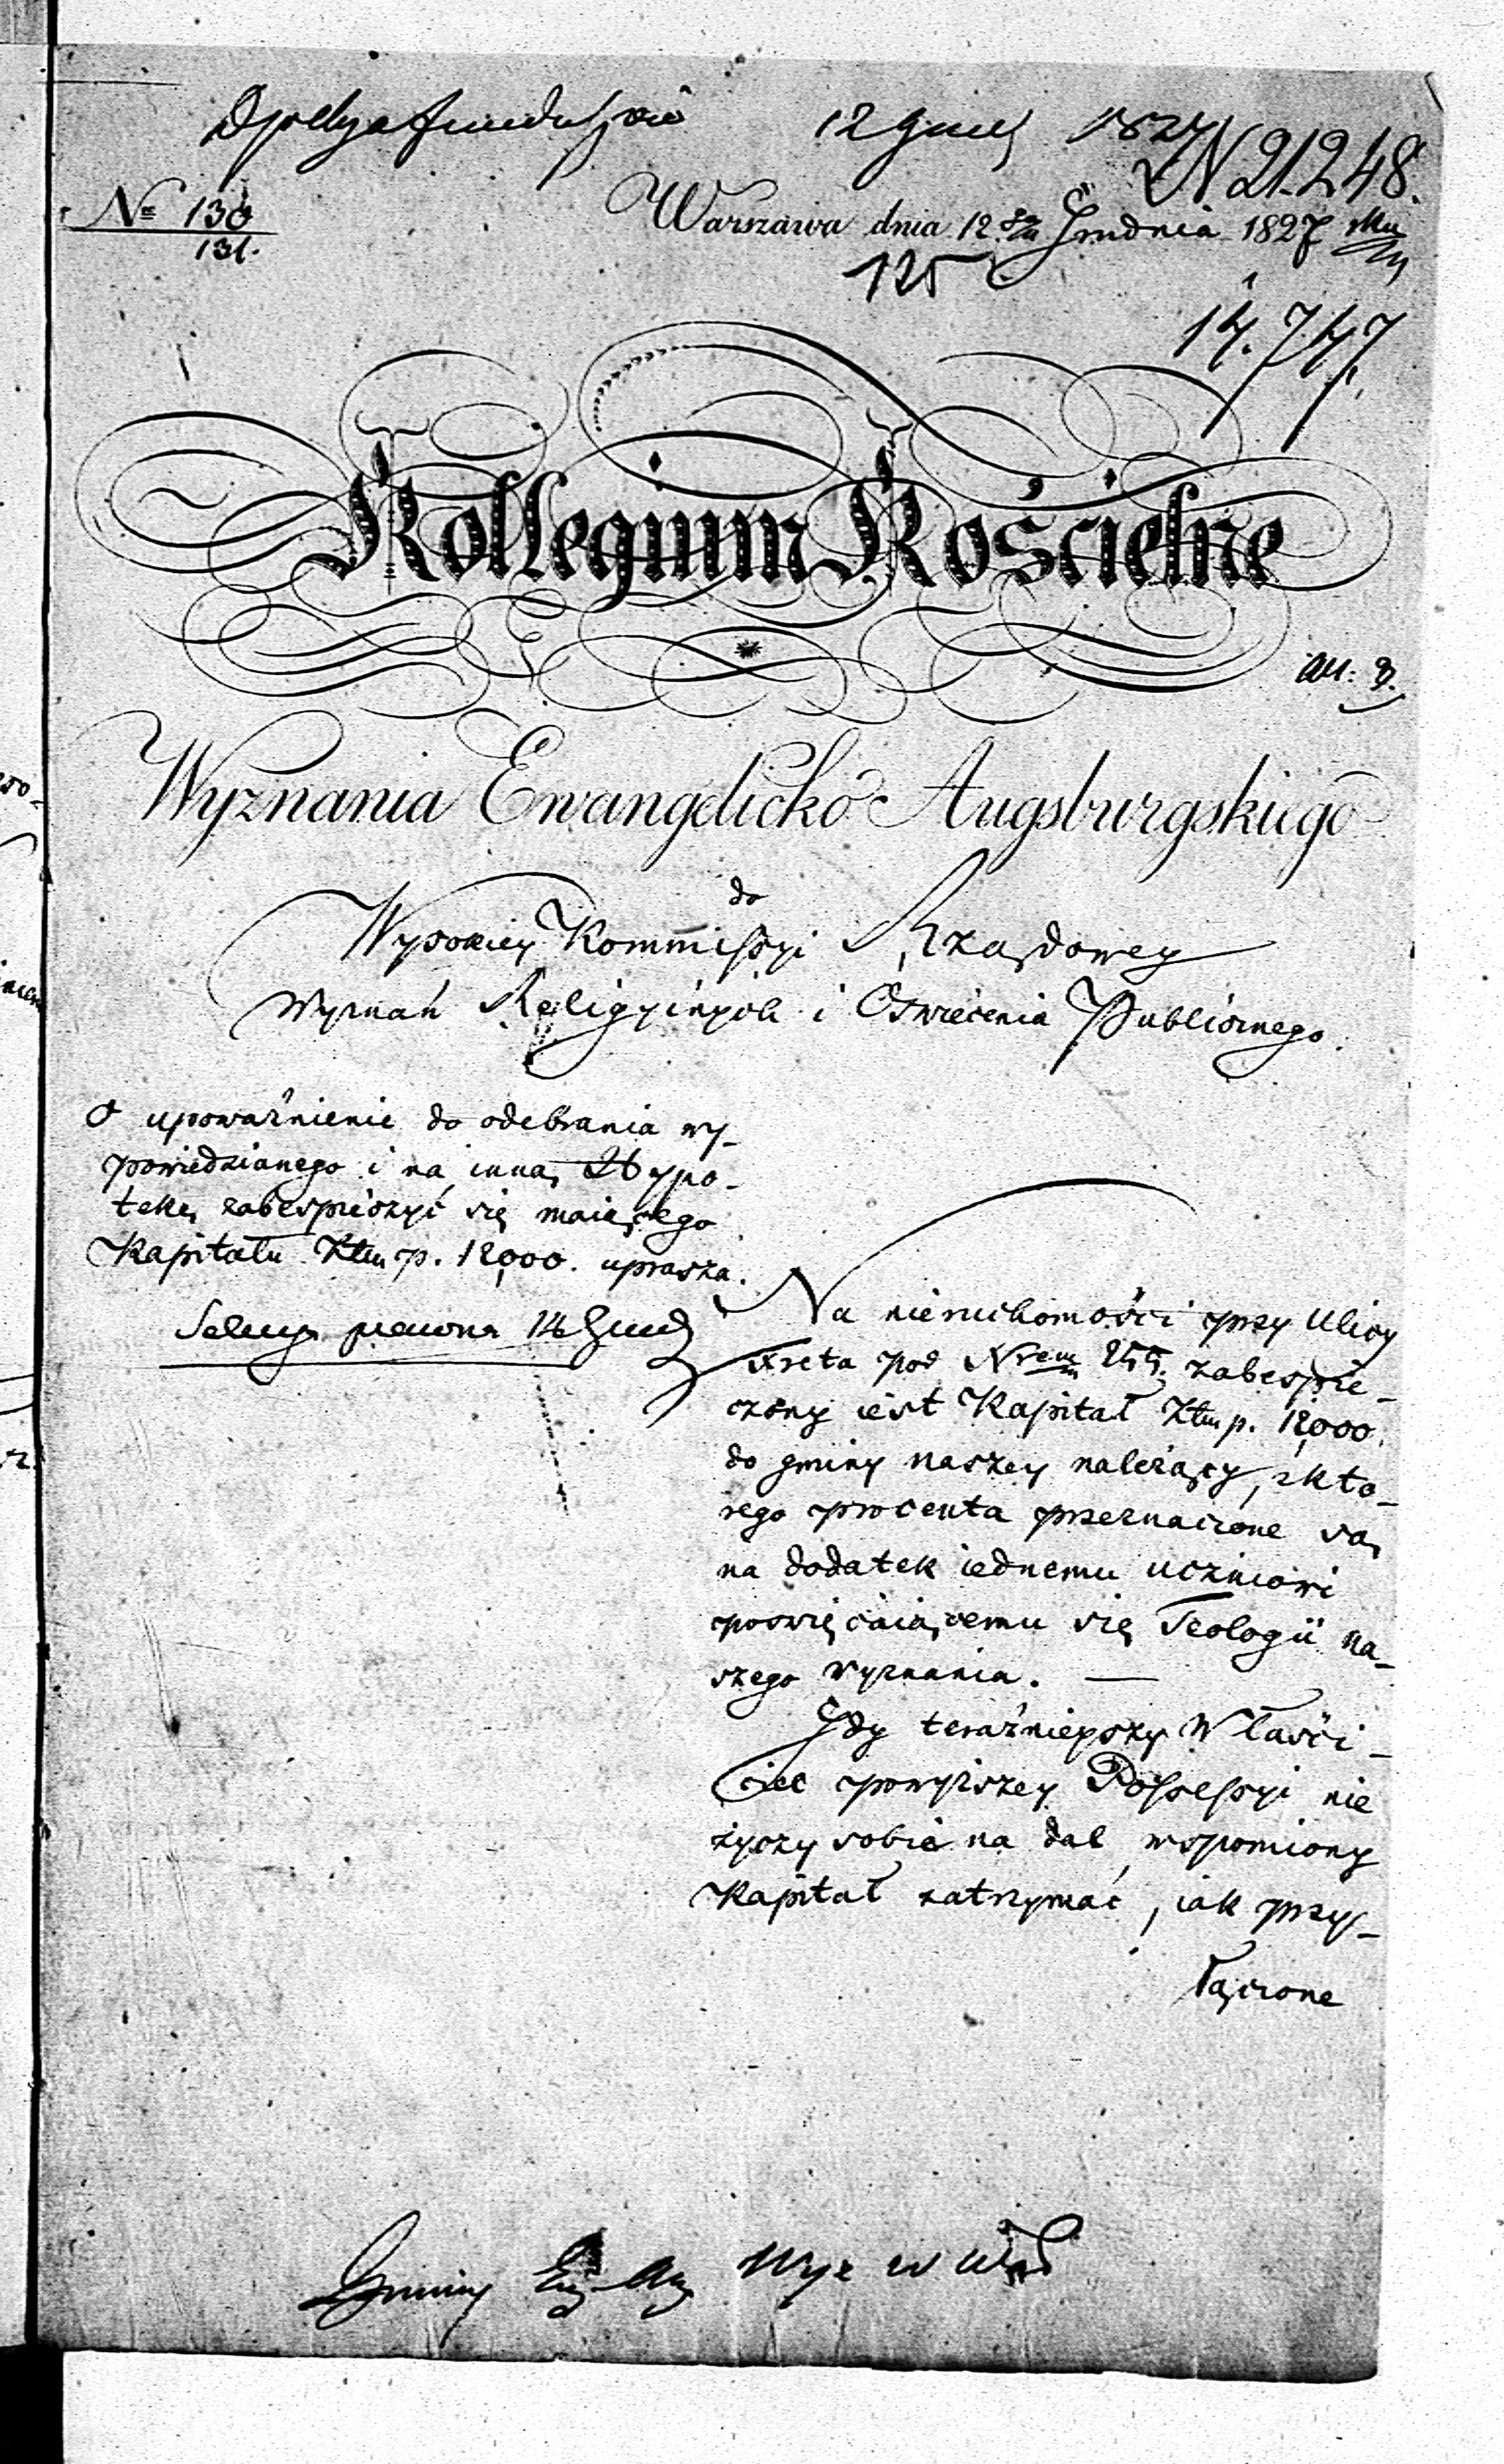 12 1827
N 21248.
№ 130
131.
Warszawa dnia 12 Grudnia 1827
125
14.747
Kollegium Kościelne
Wyznania Ewangelicko Augsburgskiego
do
Wysokiey Kommissyi Rządowey
Wyznań Religyinych i Oświecenia Publicznego.
O upoważnienie do odebrania wy-
powiedzianego i na inną Hypo-
tekę zabespieczyć się maiącego
Kapitału Złłm p. 12,000. uprasza.
Sekcya prawna 14 Grud
Na nieruchomości przy Ulicy
Freta pod Nrem 255. zabespie-
czony iest Kapitał Złłm p. 12,000.
do gminy naszey należący, z któ-
rego procenta przeznaczone są
na dodatek iednemu uczniowi
poświęcaiącemu się Teologii na-
szego Wyznania. —
Gdy teraźnieyszy Właści-
ciel powyższey Possessyi nie
życzy sobie na dal wspomiony
Kapitał zatrzymać, iak przy-
łączone
Gminy Ew. Aug Wyz w